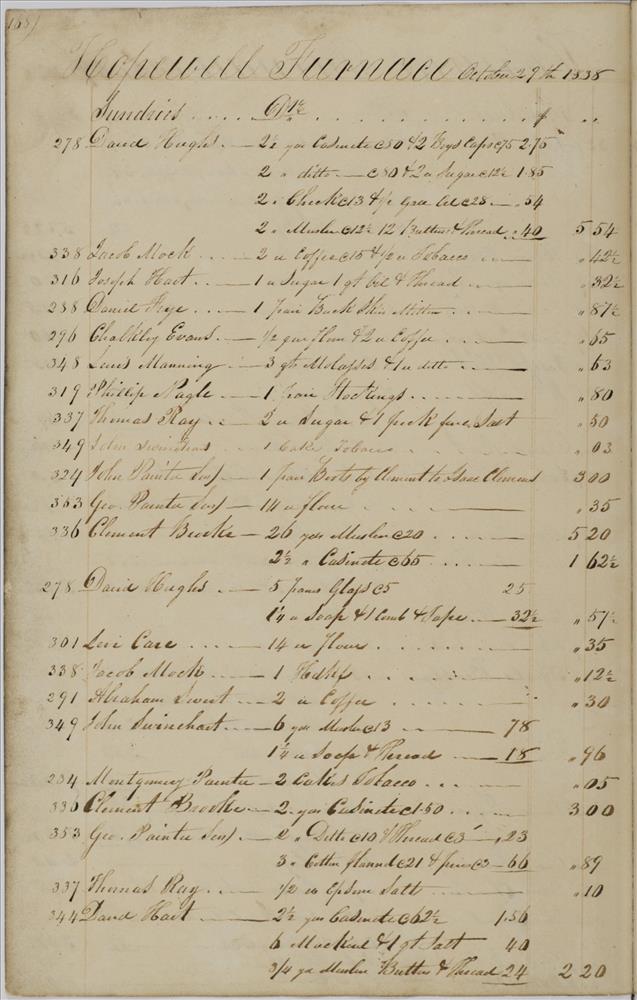 168
Hopewell Furnace October 29th 1838
Sundries .... Dr
278 David Hughs - 2½ yds Casinete c80 & 2 Boys Caps c75 2.75
2 " ditto - c80 & 2 " Sugar c12½ 1.85
2 " Check c13 & ½ Oil c28 - .54
2 " Muslin c12½ 12 Buttons & Thread .40 5 54
338 Jacob Mock - 2 " Coffee c15 & ½ " Tobacco " 42½
316 Joseph Hart - 1 " Sugar 1 qt Oil & Thread " 32½
288 Daniel - 1 pair Buck Skin Mittens " 87½
296 Chalkley Evans - ½ qur flour & 2 " Coffee " 65
348 Lewis Manning - 3 qts Molasses & 1 " ditto " 63
319 Phillip Nagle - 1 pair Stockings " 80
337 Thomas Ray - 2 " Sugar & 1 peck fine Salt " 50
349 John Swinehart - 1 Cake Tobacco " 03
324 John Painter - 1 pair Boots by Clement to Isaac Clemens 3 00
353 Geo. Painter - 14 " flour " 35
336 Clement Brooke - 26 yds Muslin c20 5 20
2½ " Casinete c65 1 62½
278 David Hughs - 5 panes Glass c5 25
1¼ " Soap & 1 Comb & Tape - 32½ " 57½
301 Levi Care - 14 " flour " 35
338 Jacob Mock - 1 Hdkf " 12½
291 Abraham - 2 " Coffee " 30
349 John Swinehart - 6 yds Muslin c13 - 78
1¼ " Soap & Thread - 18 " 96
284 Montgomery Painter - 2 Cakes Tobacco " 05
336 Clement Brooke - 2 yds Casinete c1.50 3 00
353 Geo. Painter - 2 " Ditto c10 & Thread c3 - .23
3 " Cotton flannel c21 & c3 - 66 " 89
337 Thomas Ray - ½ " Epsom Salt " 10
344 David Hart - 2½ yds Casinete c62½ 1.56
6 Mackerel & 1 qt Salt 40
3/4 yd Muslin Buttons & Thread 24 2 20